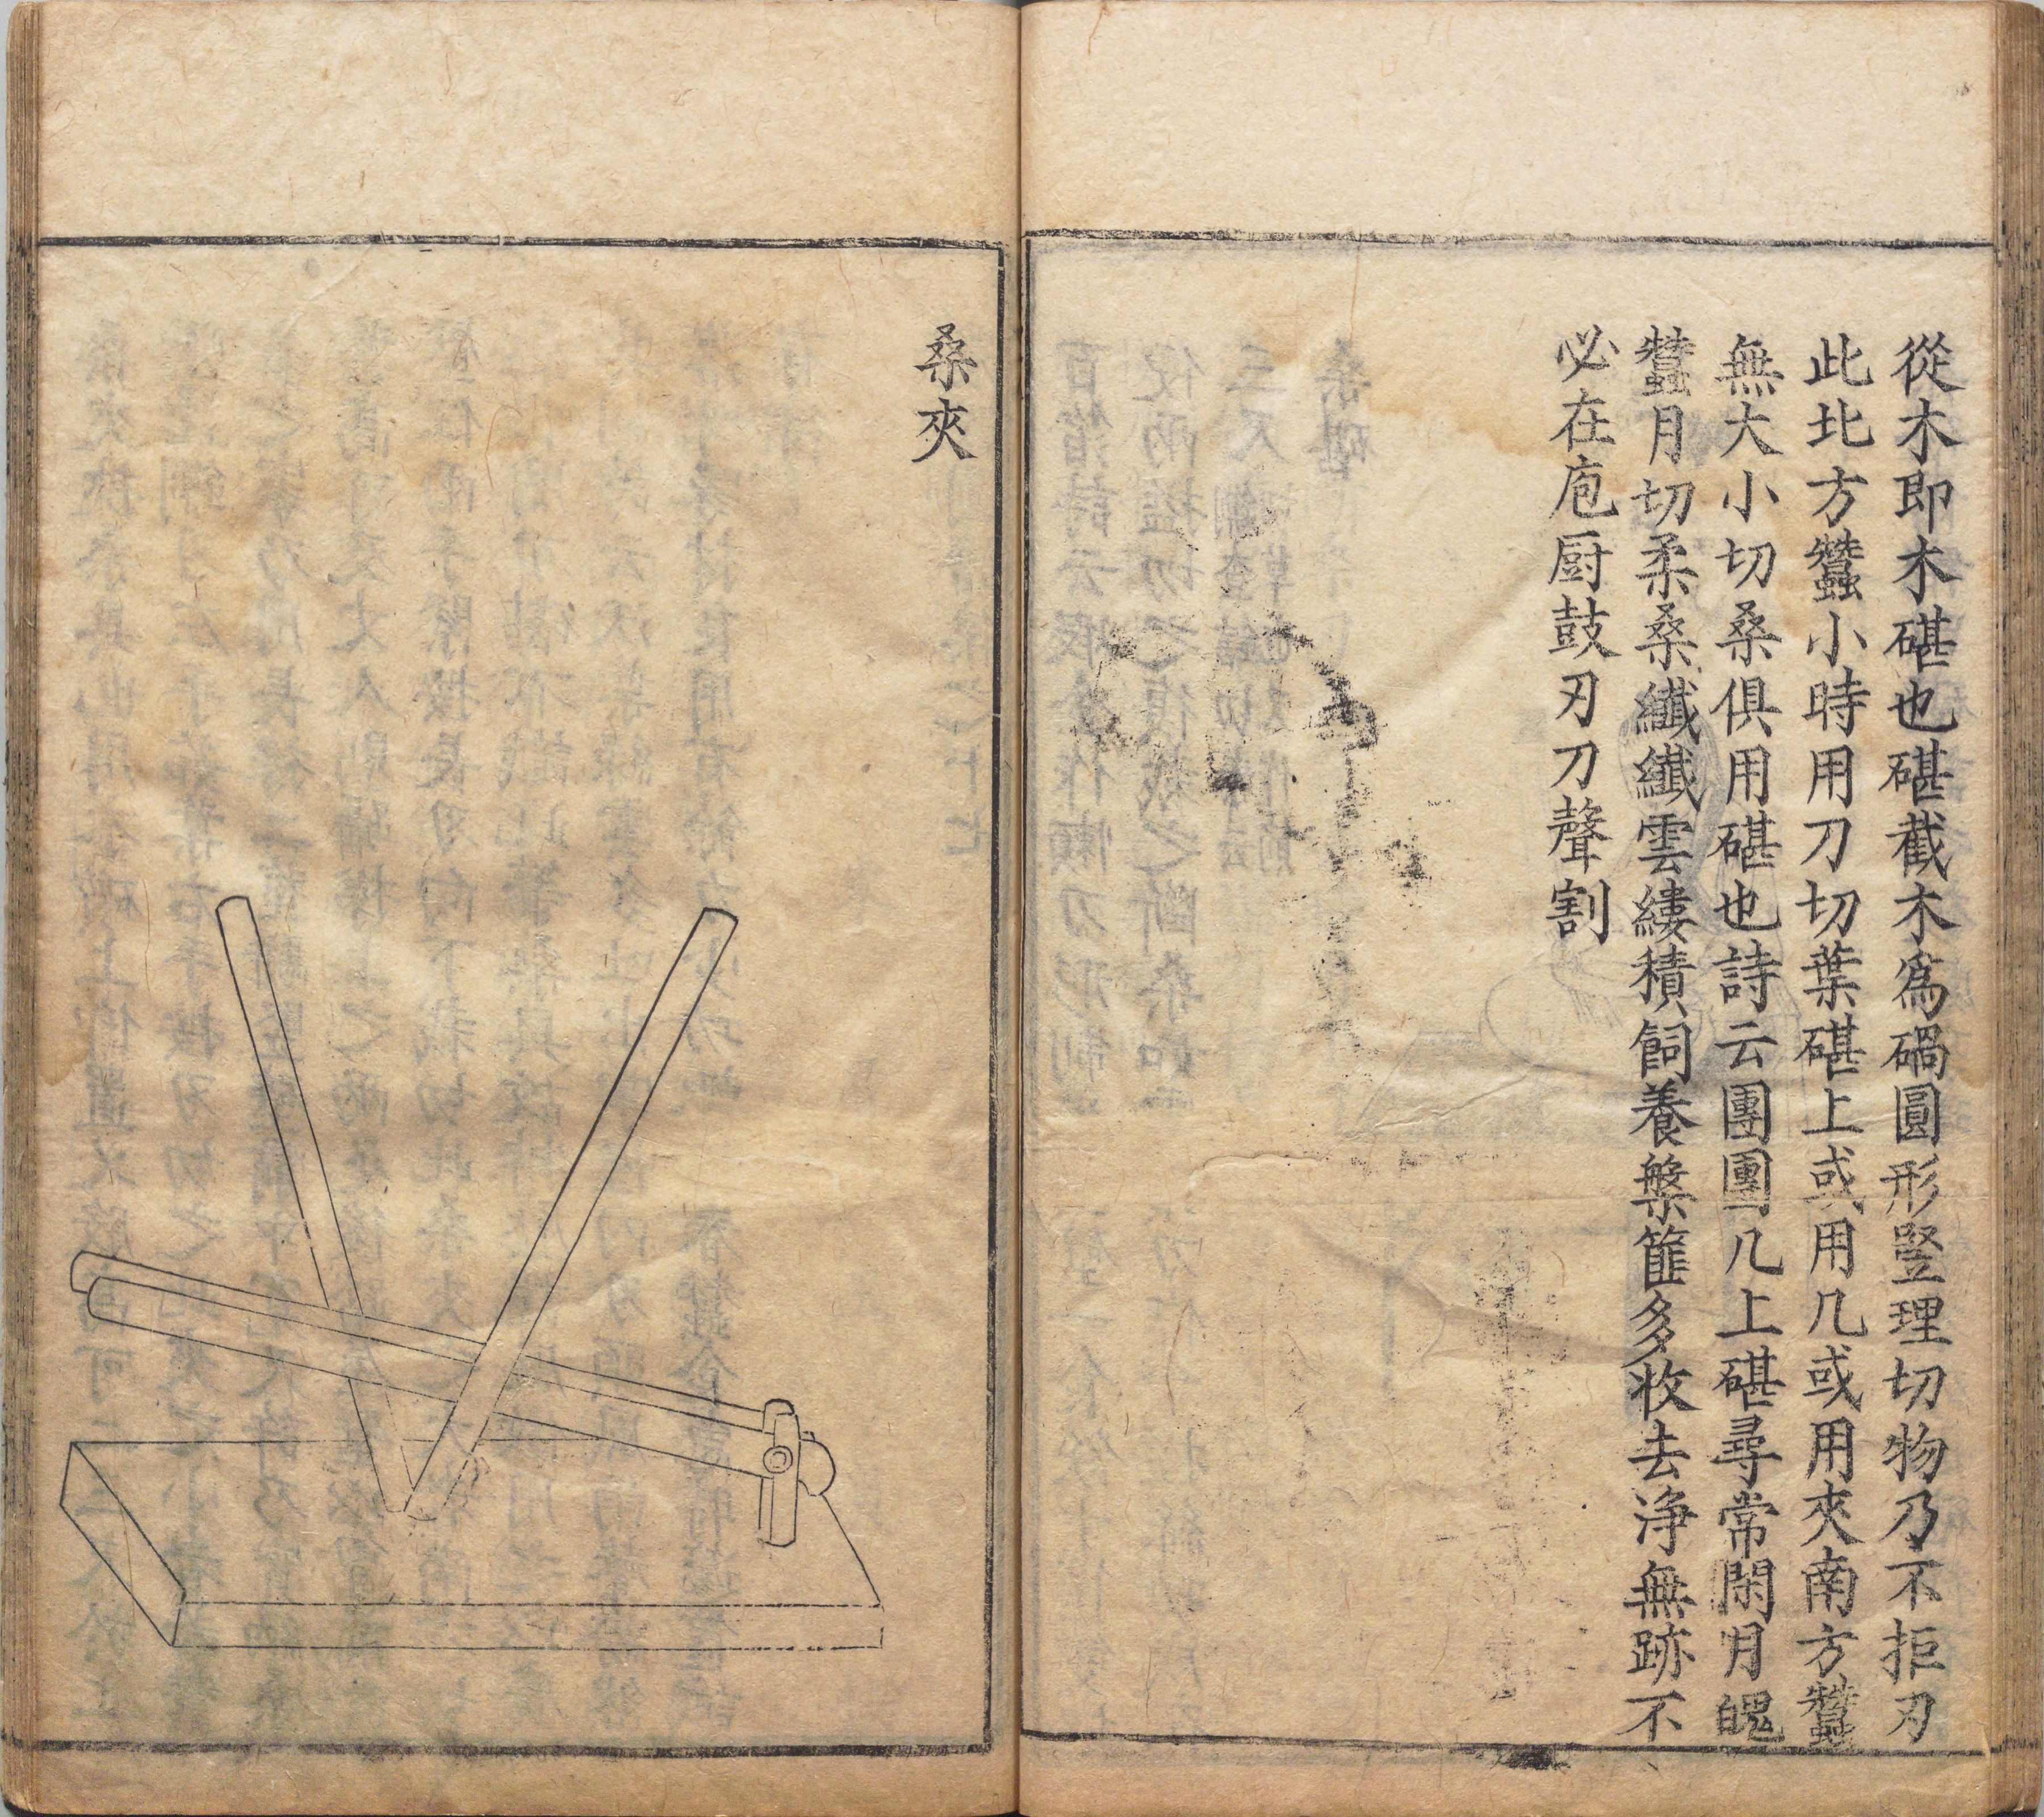 從木即木碪也碪截木爲碢圓形豎理切物乃不拒刃
此北方蠶小時用刀切葉碪上或用几或用夾南方蠶
無大小切桑俱用碪也詩云團團几上碪尋常閑月魄
蠶月切柔桑纖纖雲縷積飼養槃篚多收去浄無跡不
必在庖厨鼓刃刀聲割
桑夾